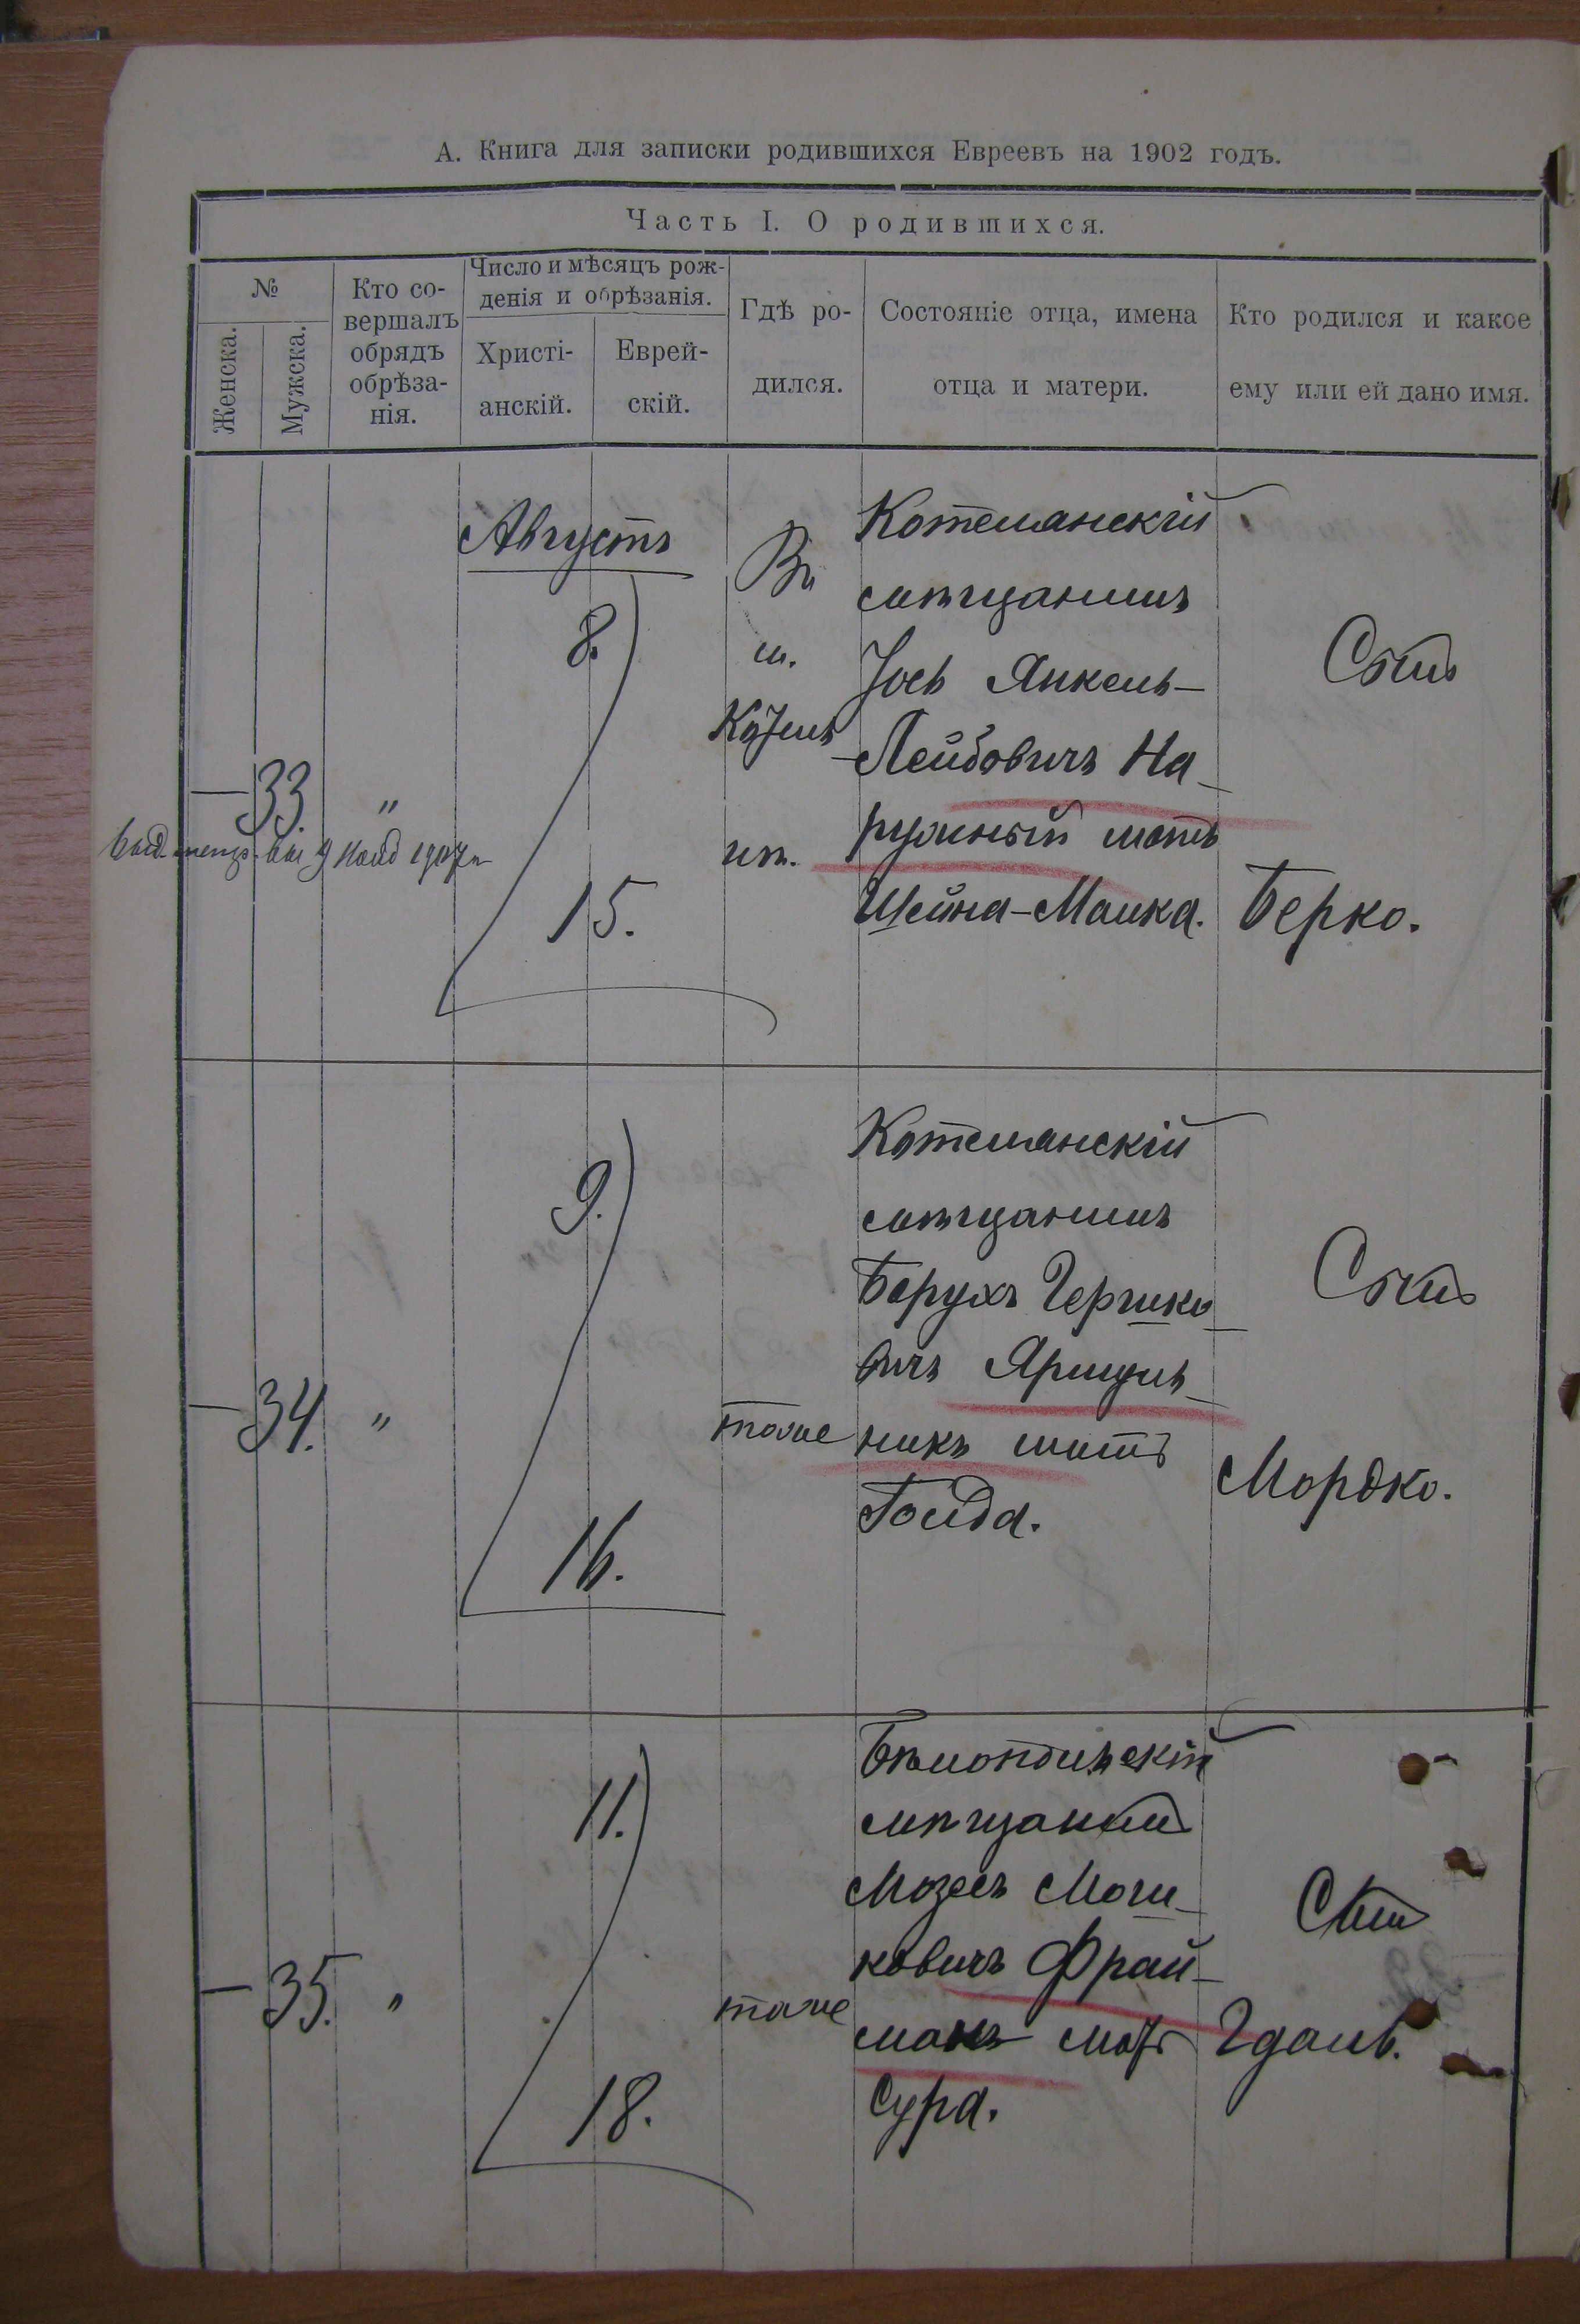 А. Книга для записки родившихся Евреевъ на 1902 годъ.
Часть I. О родившихся.
№
Женска.
Мужска.
Кто со-
вершалъ
обрядъ
обрѣза-
нія.
Число и мѣсяцъ рож-
денія и обрѣзанія.
Христі-
анскій.
Еврей-
скій.
Гдѣ ро-
дился.
Состояніе отца, имена
отца и матери.
Кто родился и какое
ему или ей дано имя.
—
33.
"
Августъ
8.
15.
Въ
м.
Котельанскій
мѣщанинъ
Іось Янкель-
-Лейбовичъ На-
ружный мать
Шейна-Малка.
Сынъ
Берко.
—
34.
"
9.
16.
тоже
Котельанскій
мѣщанинъ
Борухъ Гершко-
вичъ Ярмуль-
никъ мать
Гольда.
Сынъ
Мордко.
—
35.
"
11.
18.
тоже
мѣщанинъ
Мозесъ Мош-
ковичъ Фрай-
манъ мать
Сура.
Сынъ
Гдаль.